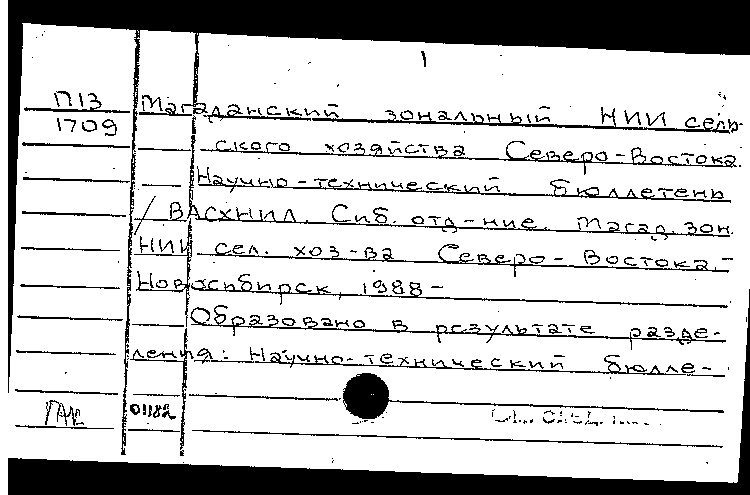 1
П13 Магаданский зональный НИИ сель-
1709 ского хозяйства Северо-Востока.
Научно-технический бюллетень
/ ВАСХНИЛ. Сиб. отд-ние. Магад. зон.
НИИ сел. хоз-ва Северо-Востока.-
Новосибирск, 1988-
Образовано в результате разде-
ления: Научно-технический бюлле-
01182